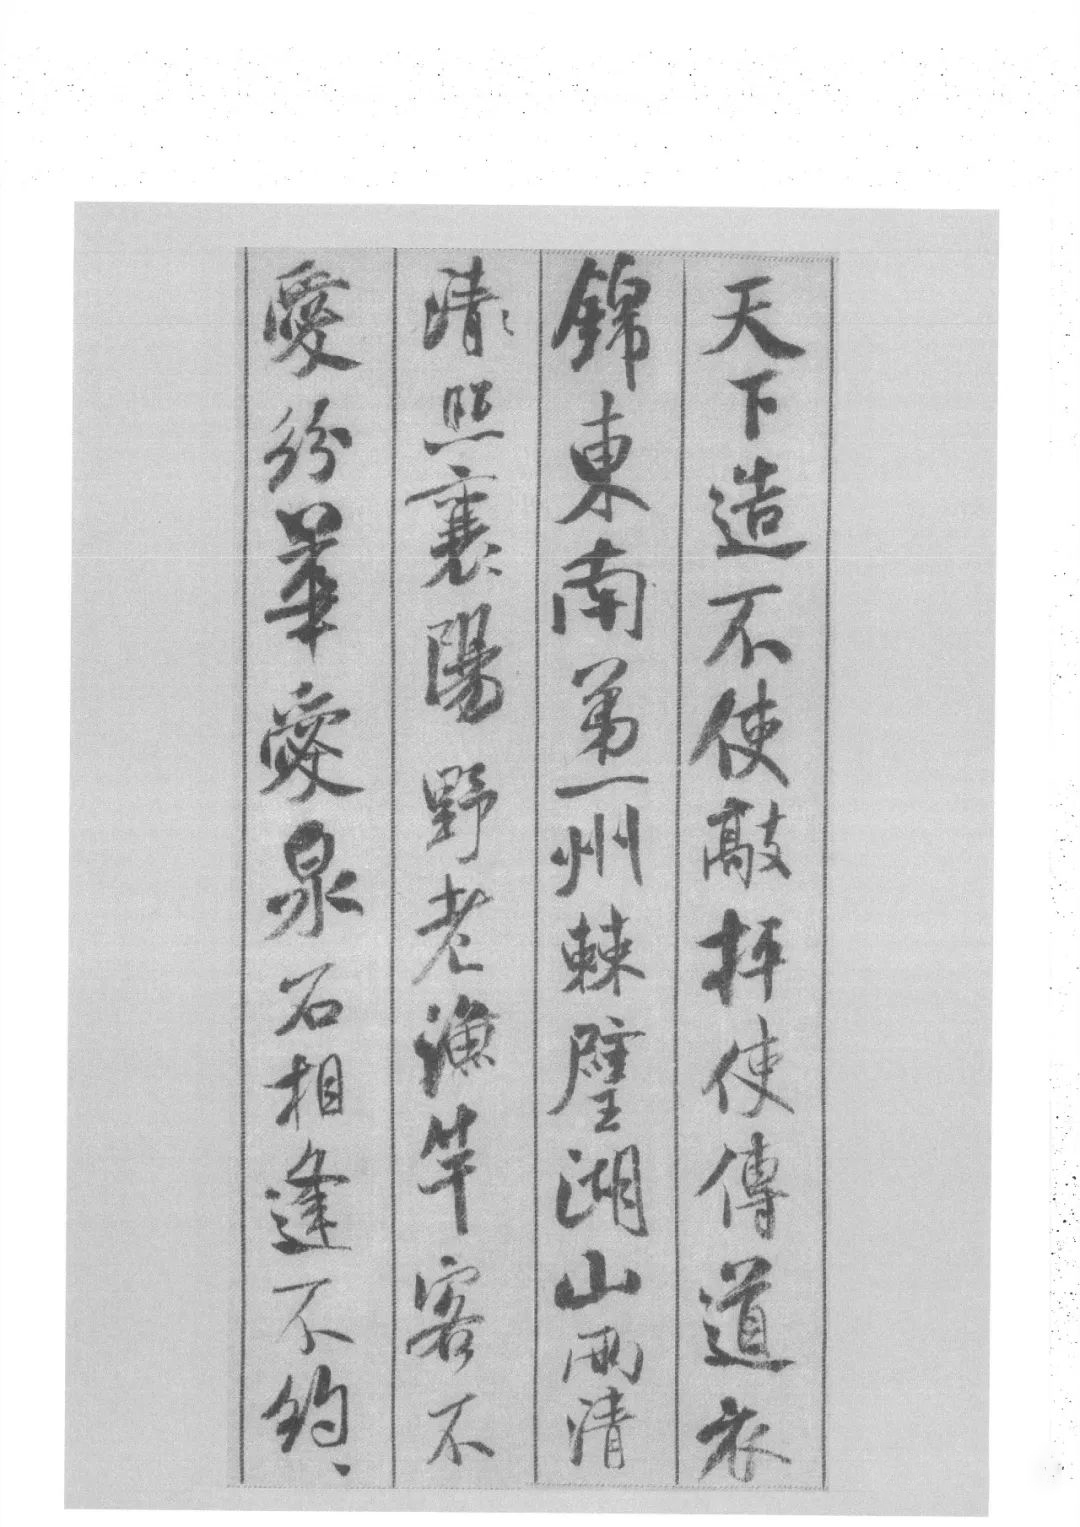 天下造不使敲抨使傳道衣
錦東南第一州棘璧湖山兩清
清〻照襄陽野老漁竿客不
愛紛華愛泉石相逢不約〻